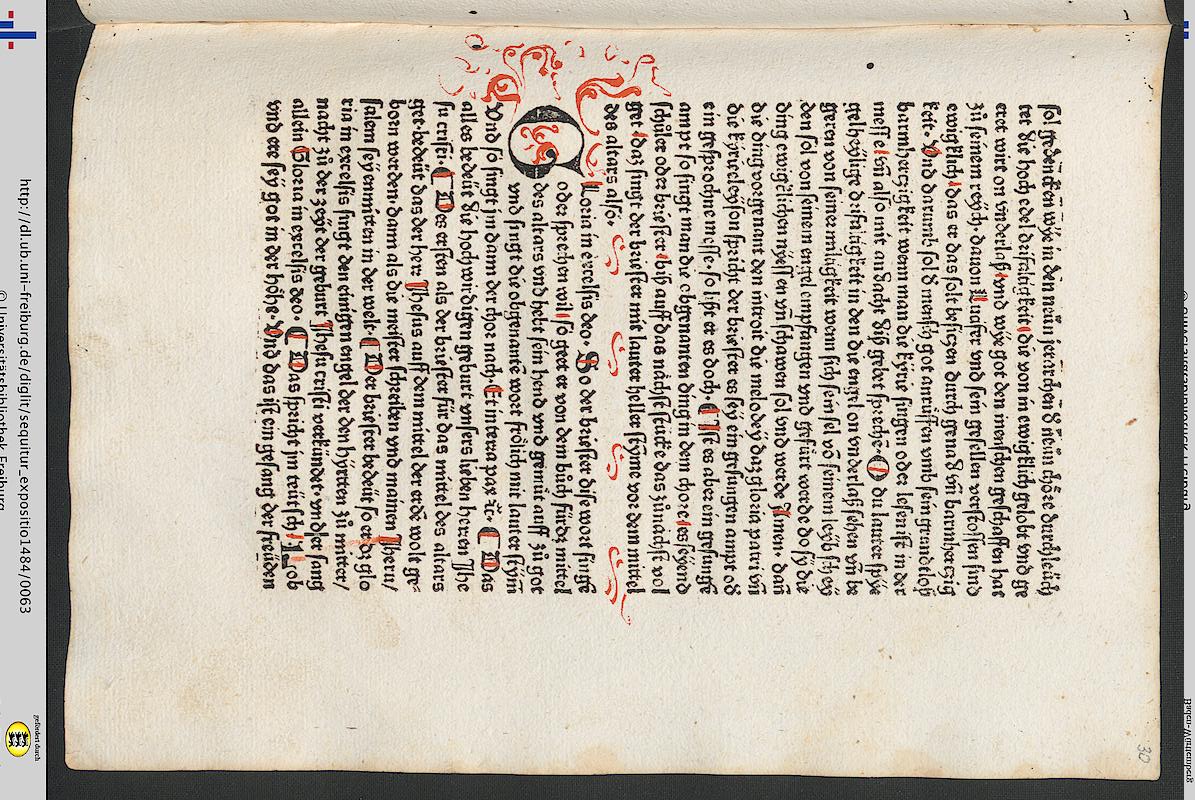 sol gedencken wÿe in den neün jerarchen vñ neün chöre durchleüch
tet die hoch edel drifaltigkeit die von in ewigklich gelobt vnd ge
eret wirt on vnderlaß vnd wÿe got den menschen geschaffen hat
zů seinem reÿch. dauon Lucifer vnd sein gesellen verstossen sind
ewigklich das er das solt besitzen durch genad vñ barmhertzig
keit. Vnd darumb sol d mensch got anrüffen vmb sein grundtloß
barmhertzigkeit wenn man die kÿrie singen oder lesen ist in der
messe vñ also mit andacht diß gebet spreche. O du lauter spÿe
gel heÿlige drifaltigkeit in den die engel on vnderlaß sehen vñ be
geren von seiner miltigkeit wenn sich sein sel võ seinem leÿb scheÿ
den sol von seinem engel empfangen vnd gefürt werde do sÿ die
ding ewigklichen nÿessen vñ schawen sol vnd werde Amen. dañ
die ding vorgenant den introit die melodeÿ das gloria patri vñ
die kÿrieleÿson spricht der briester es seÿ ein gesungen ampt od
ein gesprochne messe. so lißt er es doch. Ist es aber ein gesungē
ampt so singt man die obgenanten ding in dem chore es seÿend
schůler oder briester biß auff das nächst stücke das zůnächst vol
get daz singt der briester mit lauter heller stÿme vor dem mittel
des altars also.
Gloria in excelsis deo. So der briester dise wort singē
oder sprechen wil so geet er von dem bůch für dz mittel
des altars vnd hebt sein hend vnd gemüt auff zů got
vnd singt die obgenante wort frölich mit lauter stÿm
Vnd so singt im dann der chor nach. Et in terra pax ꝛc. Das
alles bedeüt die hochwirdigen geburt vnsers lieben herren Jhe
su cristi. Des ersten als der briester für das mittel des altars
get. bedeüt das der herr Jhesus auff dem mittel der erde wolt ge-
born werden. dann als die meister schreiben vnd mainen Jheru/
salem seÿ enmitten in der welt. Der briester bedeüt so er dz glo
ria in excelsis singt den einigen engel der den hÿrtten zů mitter/
nacht zů der zeÿt der geburt Jhesu cristi verkündet. vnd er sang
allein Gloria in excelsis deo. Das spricht im teütsch Lob
vnd ere seÿ got in der höhe. Vnd das ist ein gesang der freüden
30
http://dl.ub.uni-freiburg.de/diglit/sequitur_expositio1484/0063
© Universitätsbibliothek Freiburg
gefördert durch